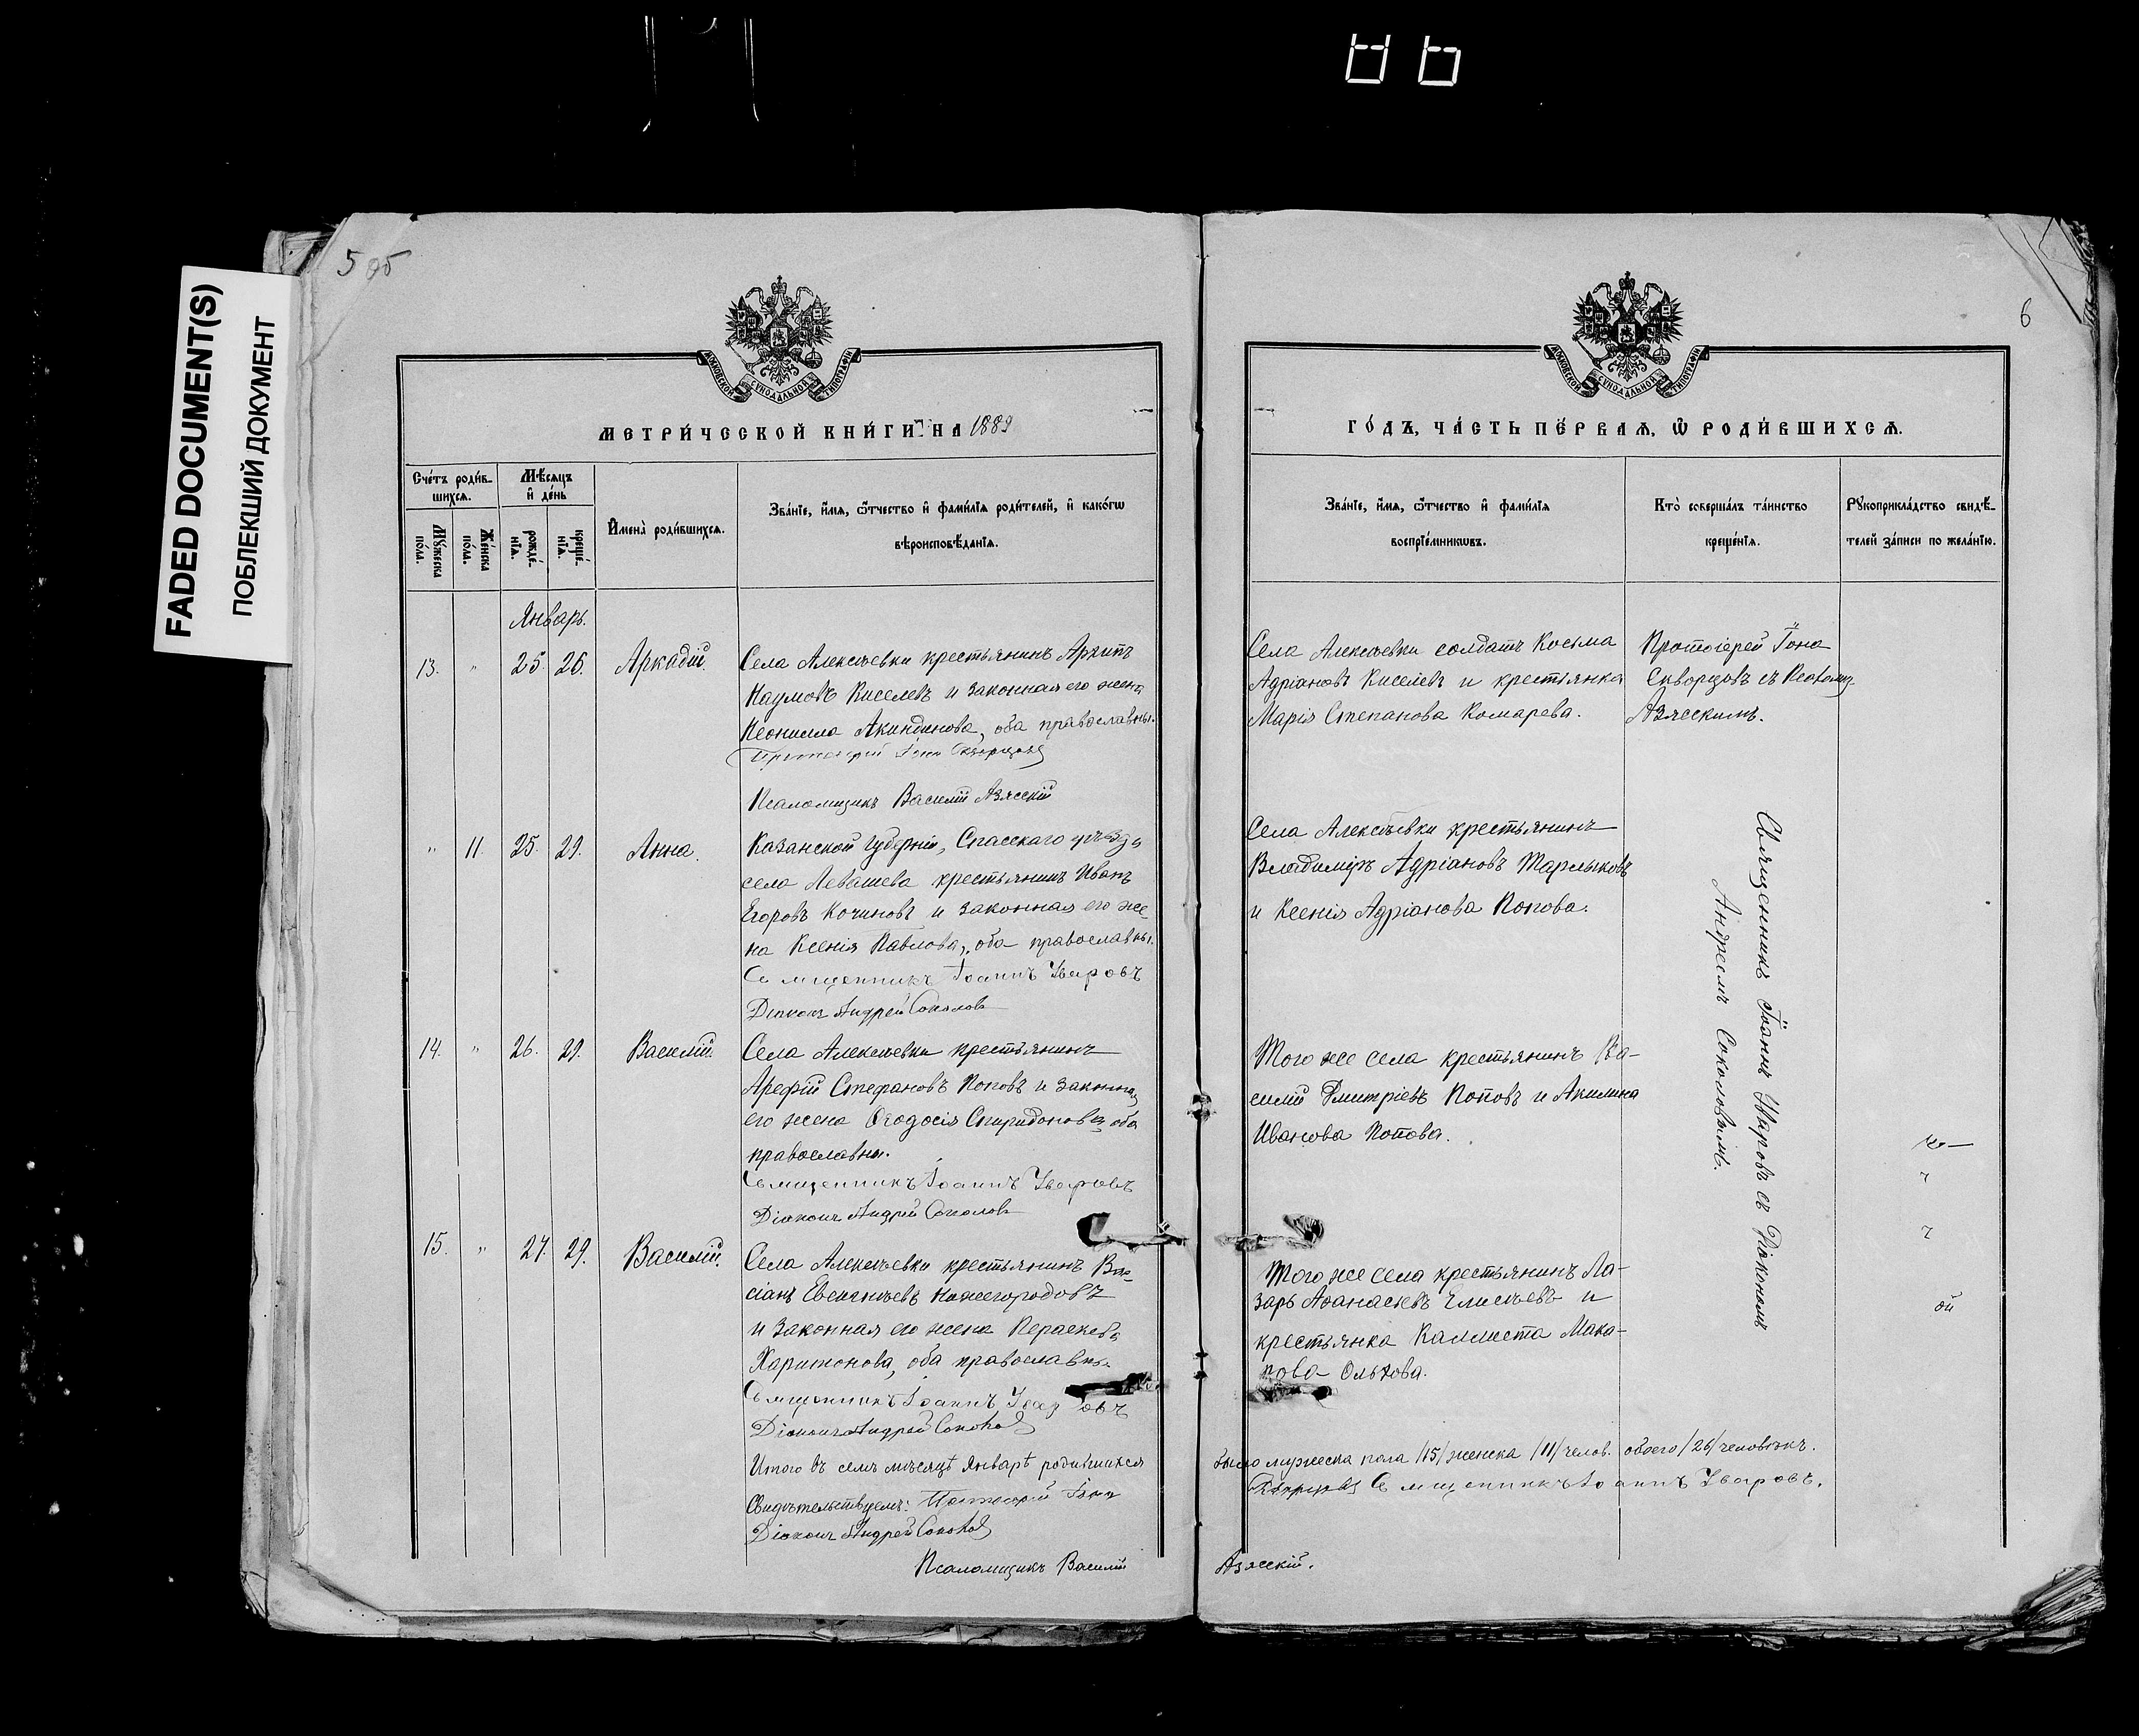 FADED DOCUMENT(S)
ПОБЛЕКШИЙ ДОКУМЕНТ
5 об
6
МОСКОВСКОЙ СУНОДАЛЬНОЙ ТИПОГРАФІИ
МОСКОВСКОЙ СУНОДАЛЬНОЙ ТИПОГРАФІИ
МЕТРИ́ЧЕСКОЙ КНИ́ГИ НА 1889
ГО́ДЪ, ЧА́СТЬ ПЕ́РВАЯ, Ѡ РОДИ́ВШИХСЯ.
Сче́тъ роди́в-
шихся.
Мѣ́сяцъ
и̂ де́нь
Му́жеска
по́ла.
Же́нска
по́ла.
рожде́-
нїя.
креще́-
нїя.
И̂мена̀ роди́вшихся.
Зва́нїе, и̂́мя, ѻ̂́тчество и̂ фами́лїя роди́телей, и̂ како́гѡ
вѣроисповѣ́данїя.
Зва́нїе, и̂́мя, ѻ̂́тчество и̂ фами́лїя
воспрїе́мникѡвъ.
Кто̀ соверша́лъ та́инство
креще́нїя.
Рꙋкоприкла́дство свидѣ́-
телей за́писи по жела́нїю.
Январь.
13. " 25. 26. Аркадій.
Села Алексѣевки крестьянинъ Архипъ
Наумовъ Киселевъ и законная его жена
Неонилла Акиндинова, оба православны.
Протоіерей Іона Скворцовъ
Псаломщикъ Василій Азясскій
Села Алексѣевки солдатъ Косьма
Адріановъ Киселевъ и крестьянка
Марія Степанова Комарева.
Протоіерей Іона
Скворцовъ съ Псаломщ.
Азясскимъ.
" 11. 25. 29. Анна.
Казанской губерніи, Спасскаго уѣзда
села Левашева крестьянинъ Иванъ
Егоровъ Кочиновъ и законная его же-
на Ксенія Павлова, оба православны.
Священникъ Іоаннъ Уваровъ
Діаконъ Андрей Соколовъ
Села Алексѣевки крестьянинъ
Владиміръ Адріановъ Тарлыковъ
и Ксенія Адріанова Попова.
Священникъ Іоаннъ Уваровъ съ Діакономъ
Андреемъ Соколовымъ.
14. " 26. 29. Василій.
Села Алексѣевки крестьянинъ
Арефій Стефановъ Поповъ и законная
его жена Ѳеодосія Спиридонова, оба
православны.
Священникъ Іоаннъ Уваровъ
Діаконъ Андрей Соколовъ
Того же села крестьянинъ Ва-
силій Дмитріевъ Поповъ и Акилина
Иванова Попова.
15. " 27. 29. Василій.
Села Алексѣевки крестьянинъ Вас-
сіанъ Евсигнѣевъ Нижегородовъ
и законная его жена Параскева
Харитонова, оба православны.
Священникъ Іоаннъ Уваровъ
Діаконъ Андрей Соколовъ
Того же села крестьянинъ Ла-
зарь Аѳанасіевъ Елисѣевъ и
крестьянка Каллиста Мака-
рова Ольхова.
Итого въ семъ мѣсяцѣ Январѣ родившихся
было мужеска пола /15/ женска /11/ челов. обоего /26/ человѣкъ.
Свидѣтельствуемъ: Протоіерей Іона
Скворцовъ Священникъ Іоаннъ Уваровъ.
Діаконъ Андрей Соколовъ
Псаломщикъ Василій
Азясскій.